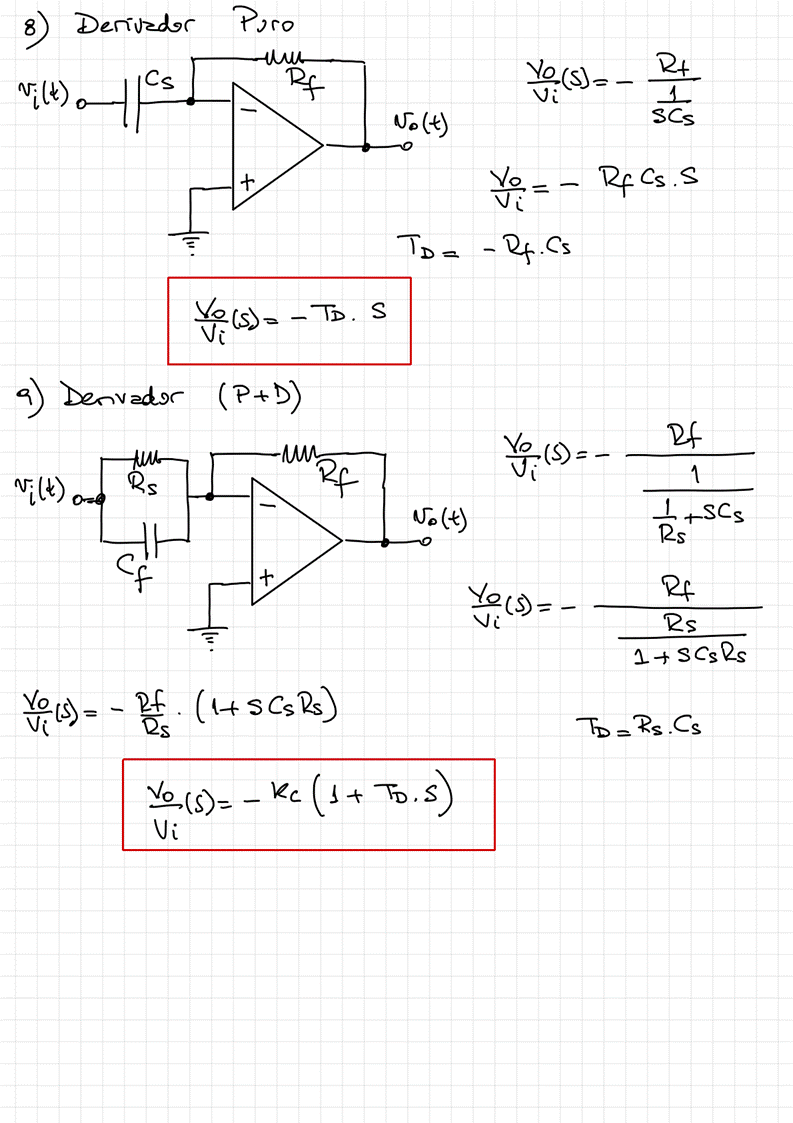 8) Derivador Puro
Cs
Rf
vi(t)
−
+
vo(t)
Vo/Vi (s) = − Rf / (1/SCs)
Vo/Vi = − Rf Cs . S
TD = − Rf . Cs
Vo/Vi (s) = − TD . S
9) Derivador (P+D)
Rs
Rf
vi(t)
Cf
−
+
vo(t)
Vo/Vi (s) = − Rf / (1 / (1/Rs + SCs))
Vo/Vi (s) = − Rf / (Rs / (1 + SCsRs))
Vo/Vi (s) = − Rf/Rs . (1 + S Cs Rs)
TD = Rs . Cs
Vo/Vi (s) = − Kc (1 + TD . S)